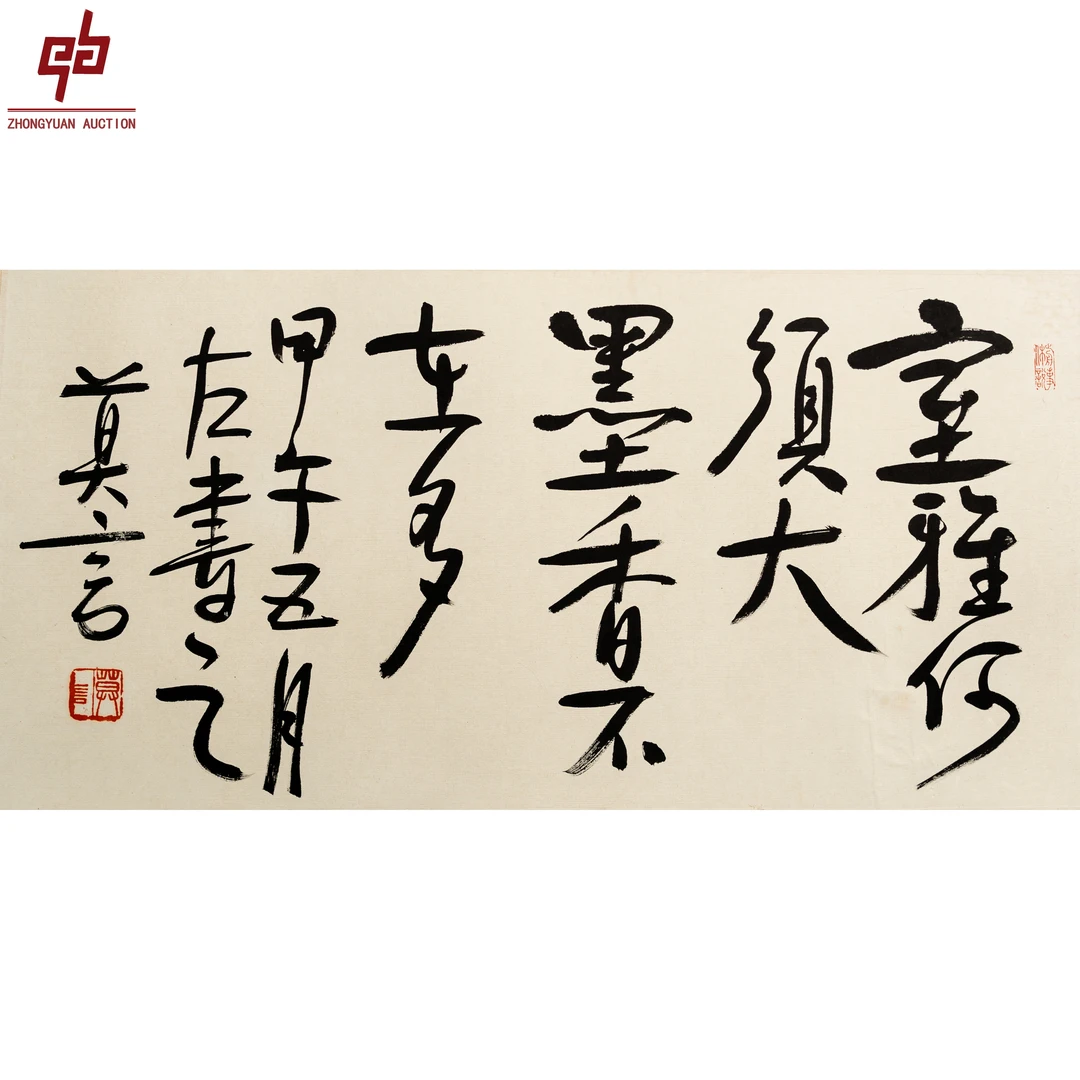 ZHONGYUAN AUCTION
室雅何
須大
墨香不
在多
甲午五月
左書之
莫言
莫言